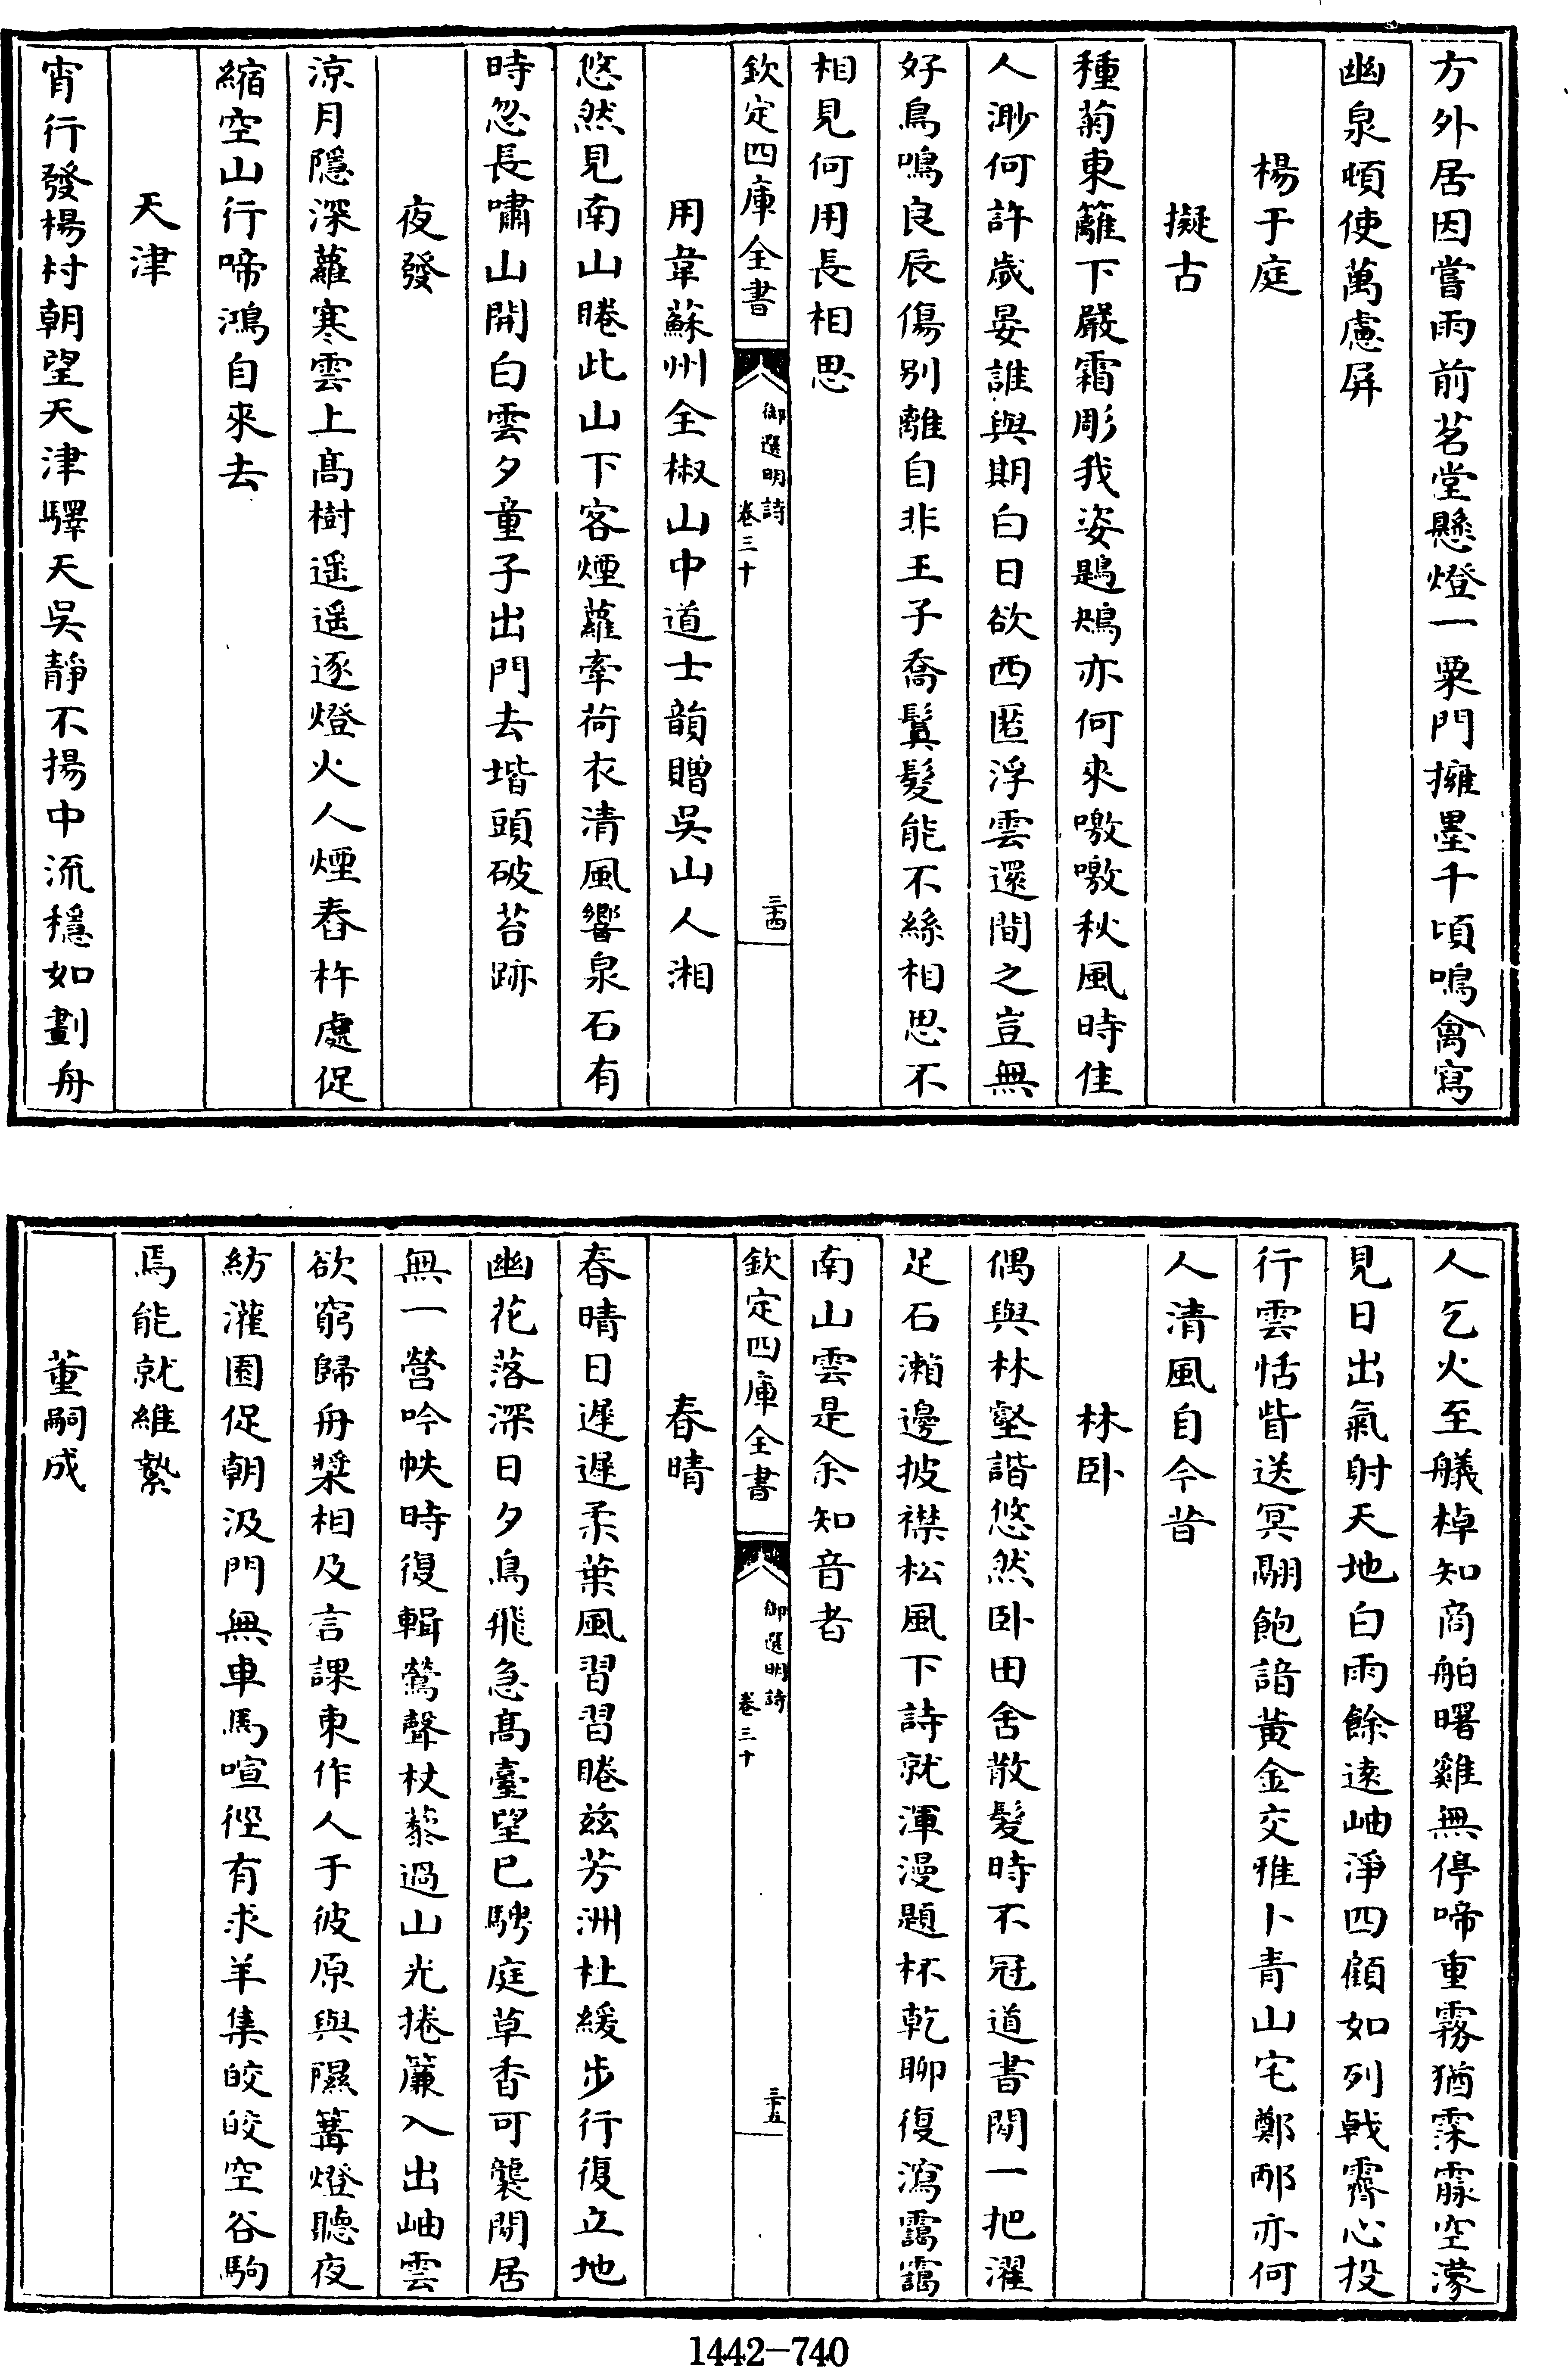 方外居因嘗雨前茗堂懸燈一粟門擁墨千頃鳴禽寫
幽泉頓使萬慮屏
楊于庭
擬古
種菊東籬下嚴霜彫我姿鶗鴂亦何來噭噭秋風時佳
人渺何許歲晏誰與期白日欲西匿浮雲還間之豈無
好鳥鳴良辰傷別離自非王子喬鬒髮能不絲相思不
相見何用長相思
欽定四庫全書
御選明詩
卷三十
三十四
用韋蘇州全椒山中道士韻贈吳山人湘
悠然見南山睠此山下客煙蘿牽荷衣清風響泉石有
時忽長嘯山開白雲夕童子出門去堦頭破苔跡
夜發
涼月隱深蘿寒雲上高樹遥遥逐燈火人煙舂杵處促
縮空山行啼鴻自來去
天津
宵行發楊村朝望天津驛天吳靜不揚中流穩如劃舟
人乞火至艤棹知商舶曙雞無停啼重霧猶霂霢空濛
見日出氣射天地白雨餘遠岫淨四顧如列戟霽心投
行雲恬眥送冥翮飽諳黃金交雅卜青山宅鄭邴亦何
人清風自今昔
林卧
偶與林壑諧悠然卧田舍散髮時不冠道書閒一把濯
足石瀨邊披襟松風下詩就渾漫題杯乾聊復瀉靄靄
南山雲是余知音者
欽定四庫全書
御選明詩
卷三十
三十五
春晴
春晴日遲遲柔葉風習習睠兹芳洲杜緩步行復立地
幽花落深日夕鳥飛急高臺望已騁庭草香可襲閒居
無一營吟帙時復輯鶯聲杖藜過山光捲簾入出岫雲
欲窮歸舟槳相及言課東作人于彼原與隰篝燈聽夜
紡灌園促朝汲門無車馬喧徑有求羊集皎皎空谷駒
焉能就維縶
董嗣成
1442-740